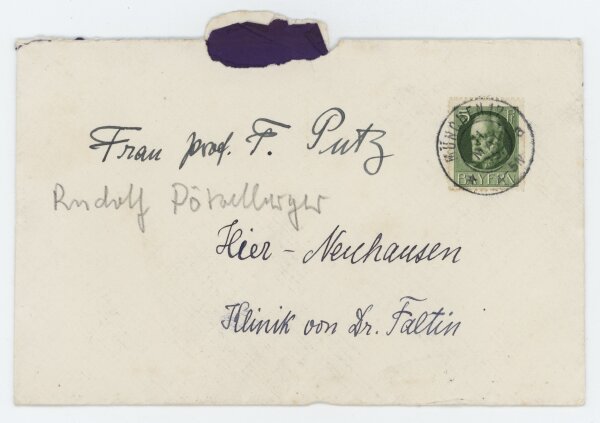 Frau prof. F. Putz
Rudolf
Hier - Neuhausen
Klinik von Dr. Faltin
MÜNCHEN
BAYERN